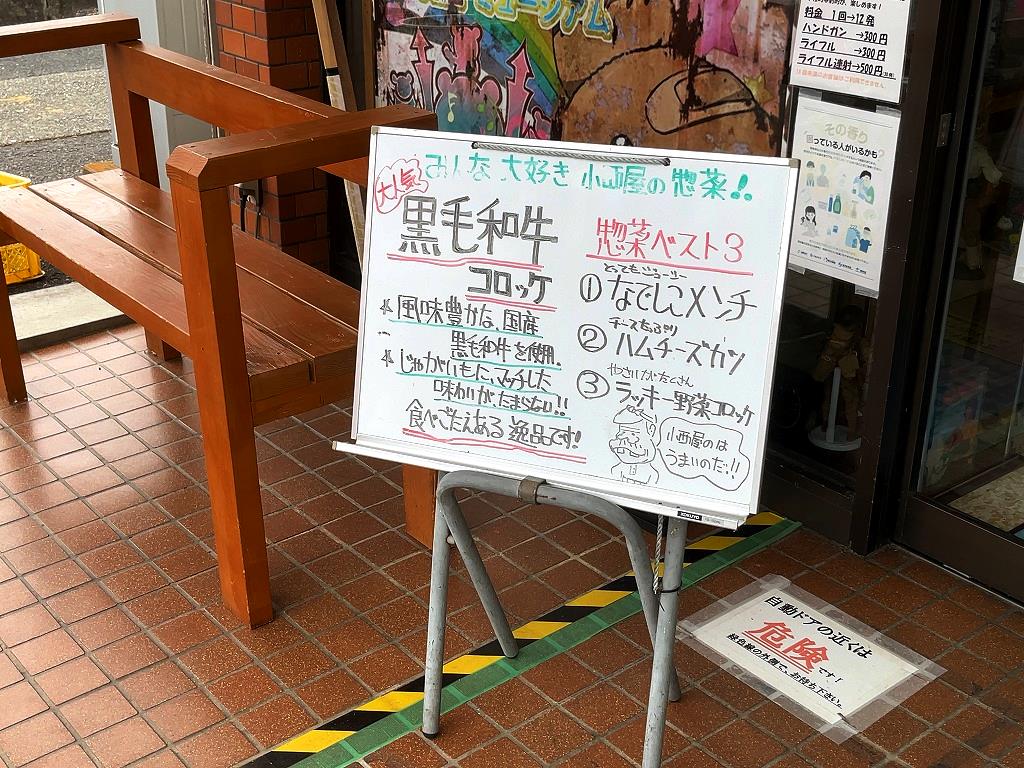 ミュージアム
料金 1回→12発
ハンドガン →300円
ライフル →300円
ライフル連射→500円
その香り
困っている人がいるかも
みんな大好き 小西屋の惣菜!!
大人気
黒毛和牛
コロッケ
風味豊かな、国産
黒毛和牛を使用
じゃがいもに、マッチした
味わいがたまらない!!
食べごたえある逸品です!
惣菜ベスト3
とってもジューシー
①なでしこメンチ
チーズたっぷり
②ハムチーズカツ
やさいがたくさん
③ラッキー野菜コロッケ
小西屋のは
うまいのだっ!!
KOKUYO
自動ドアの近くは
危険です!
緑色線の外側で、お待ち下さい。